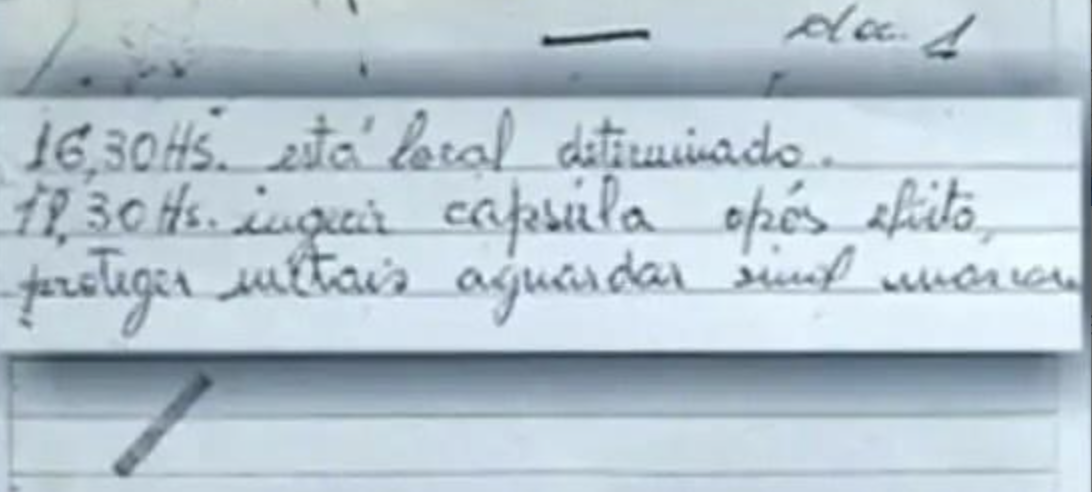 16,30 Hs. está local determinado.
18,30 Hs. ingerir capsúla após efeito,
proteger metais aguardar sinal